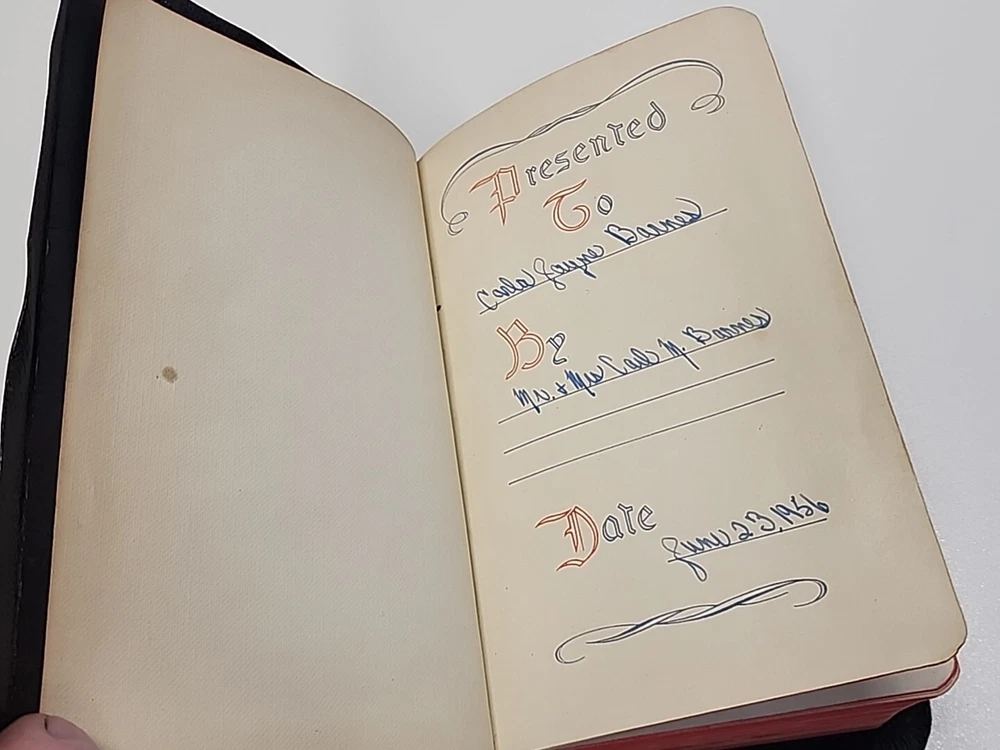 Presented
To
Carla Jayne Barnes
By
Mr. & Mrs Carl N. Barnes
Date
June 23, 1956